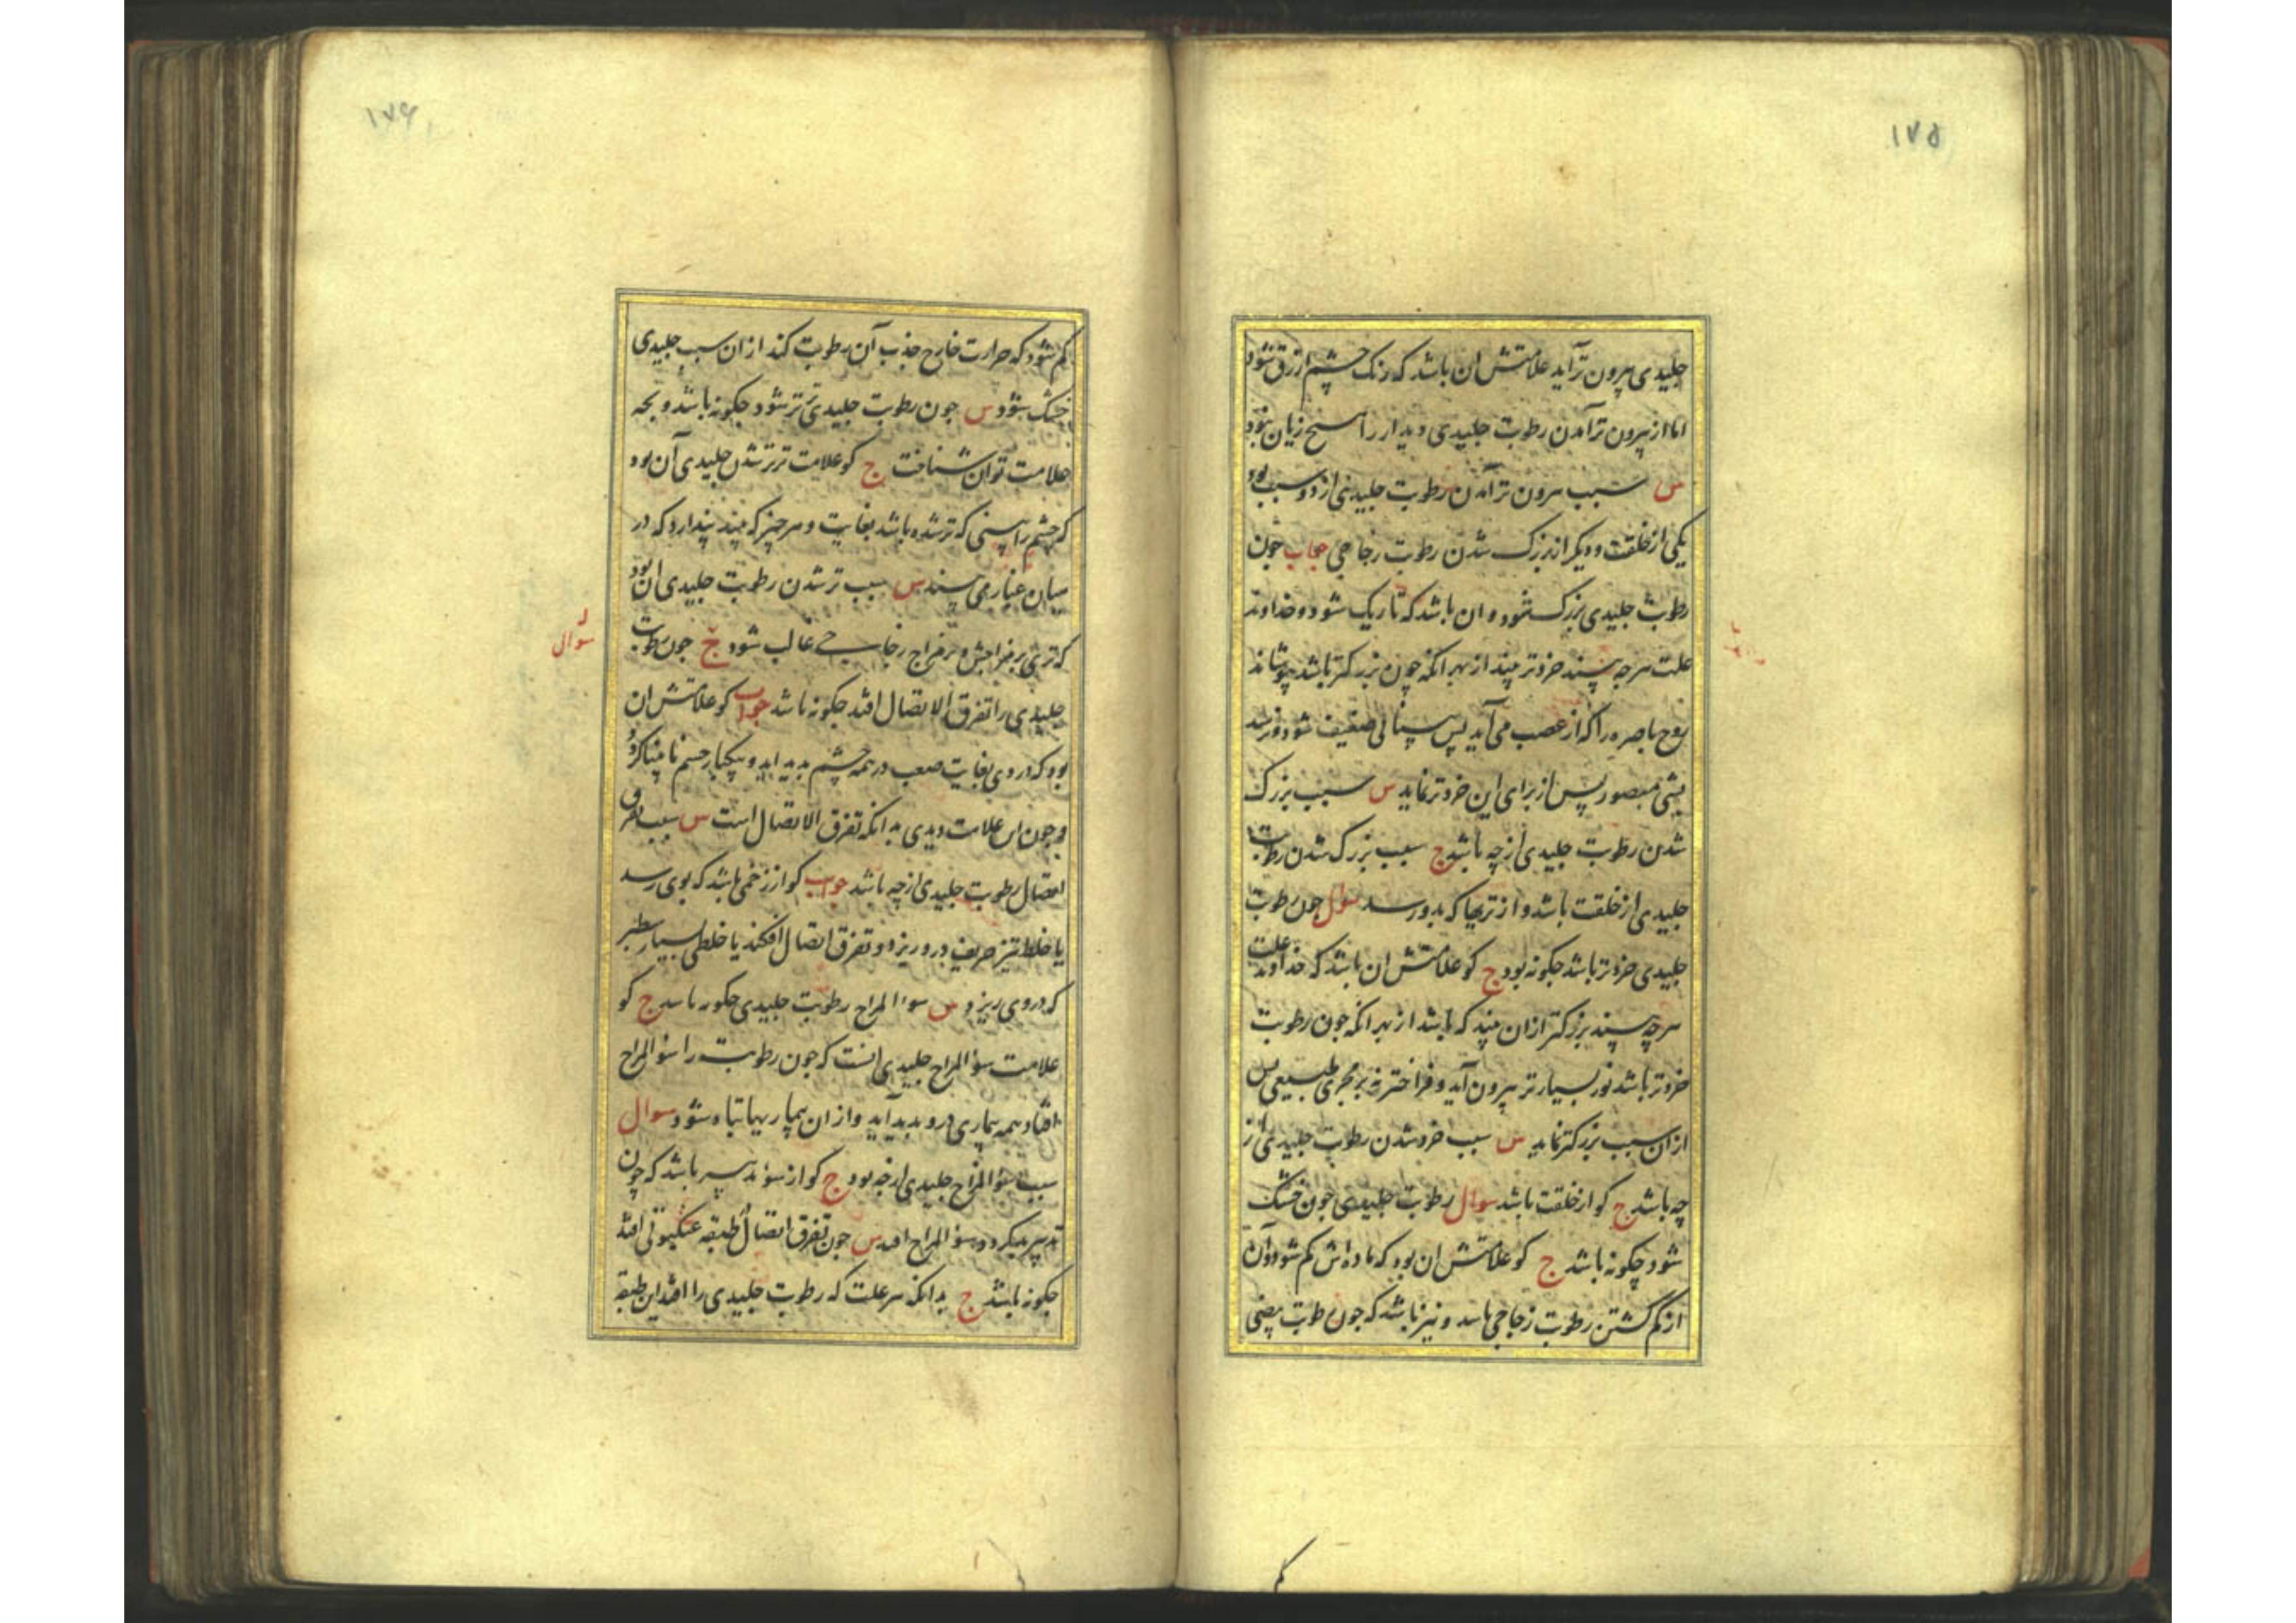 ۱۷۵
جلیدی بیرون تر آید علامتش ان باشد که رنک چشم ازرق شود
اما از بیرون تر آمدن رطوبت جلیدی دیدار را هیچ زیان نبود
س سبب بیرون تر آمدن رطوبت جلیدی از دو سبب بود
یکی از خلقت و دیگر از بزرک شدن رطوبت زجاجی جواب چون
رطوبت جلیدی بزرک شود و ان باشد که تاریک شود و خداوند
علت هر چه بیند خردتر بیند از بهر انکه چون بزرکتر باشد بپوشاند
روح باصره را که از عصب می آید پس بینائی ضعیف شود و نرسد
بشی مبصور پس از برای این خردتر نماید س سبب بزرک
شدن رطوبت جلیدی از چه باشد ج سبب بزرک شدن رطوبت
جلیدی از خلقت باشد و از تریها که بدو رسد سوال چون رطوبت
جلیدی خردتر باشد چکونه بود ج کو علامتش ان باشد که خداوند علت
هر چه بیند بزرکتر از ان بیند که باشد از بهر انکه چون رطوبت
خردتر باشد نور بسیارتر بیرون آید و فراختر نه بر مجری طبیعی پس
از ان سبب بزرکتر نماید س سبب خرد شدن رطوبت جلیدی از
چه باشد ج کو از خلقت باشد سوال رطوبت جلیدی چون خشک
شود چکونه باشد ج کو علامتش ان بود که ماده اش کم شود و آن
از کم کشتن رطوبت زجاجی باشد و نیز باشد که چون رطوبت بیضی
کم
۱۷۶
کم شود که حرارت خارج جذب آن رطوبت کند از ان سبب جلیدی
خشک شود س چون رطوبت جلیدی تر تر شود چکونه باشد و بچه
علامت توان شناخت ج کو علامت تر تر شدن جلیدی آن بود
که چشم را بینی که تر شده باشد بغایت و هر چیز که بیند پندارد که در
میان غبار می بیند س سبب تر شدن رطوبت جلیدی ان بود
که تری بر مزاجش و بر مزاج زجاجی غالب شود ج چون رطوبت
سوال
جلیدی را تفرق الاتصال افتد چکونه باشد جواب کو علامتش ان
بود که دردی بغایت صعب در همه چشم پدید اید و بیکبار چشم نابینا کردد
و چون این علامت دیدی بدانکه تفرق الاتصال است س سبب تفرق
اتصال رطوبت جلیدی از چه باشد جواب کو از زخمی باشد که بوی رسد
یا خلط تیز حریف درو ریزد و تفرق اتصال افکند یا خلطی بسیار
که در وی ریزد س سوء المزاج رطوبت جلیدی چکونه باشد ج کو
علامت سوء المزاج جلیدی انست که چون رطوبت را سوء المزاج
افتاد همه بیماری درو پدید آید و از ان بیماریها تباه شود سوال
سبب سوء المزاج جلیدی از چه بود ج کو از سوء تدبیر باشد که چون
تدبیر بد کردد سوء المزاج افتد س چون تفرق اتصال طبقه عنکبوتی افتد
چکونه باشد ج بدانکه هر علت که رطوبت جلیدی را افتد این طبقه